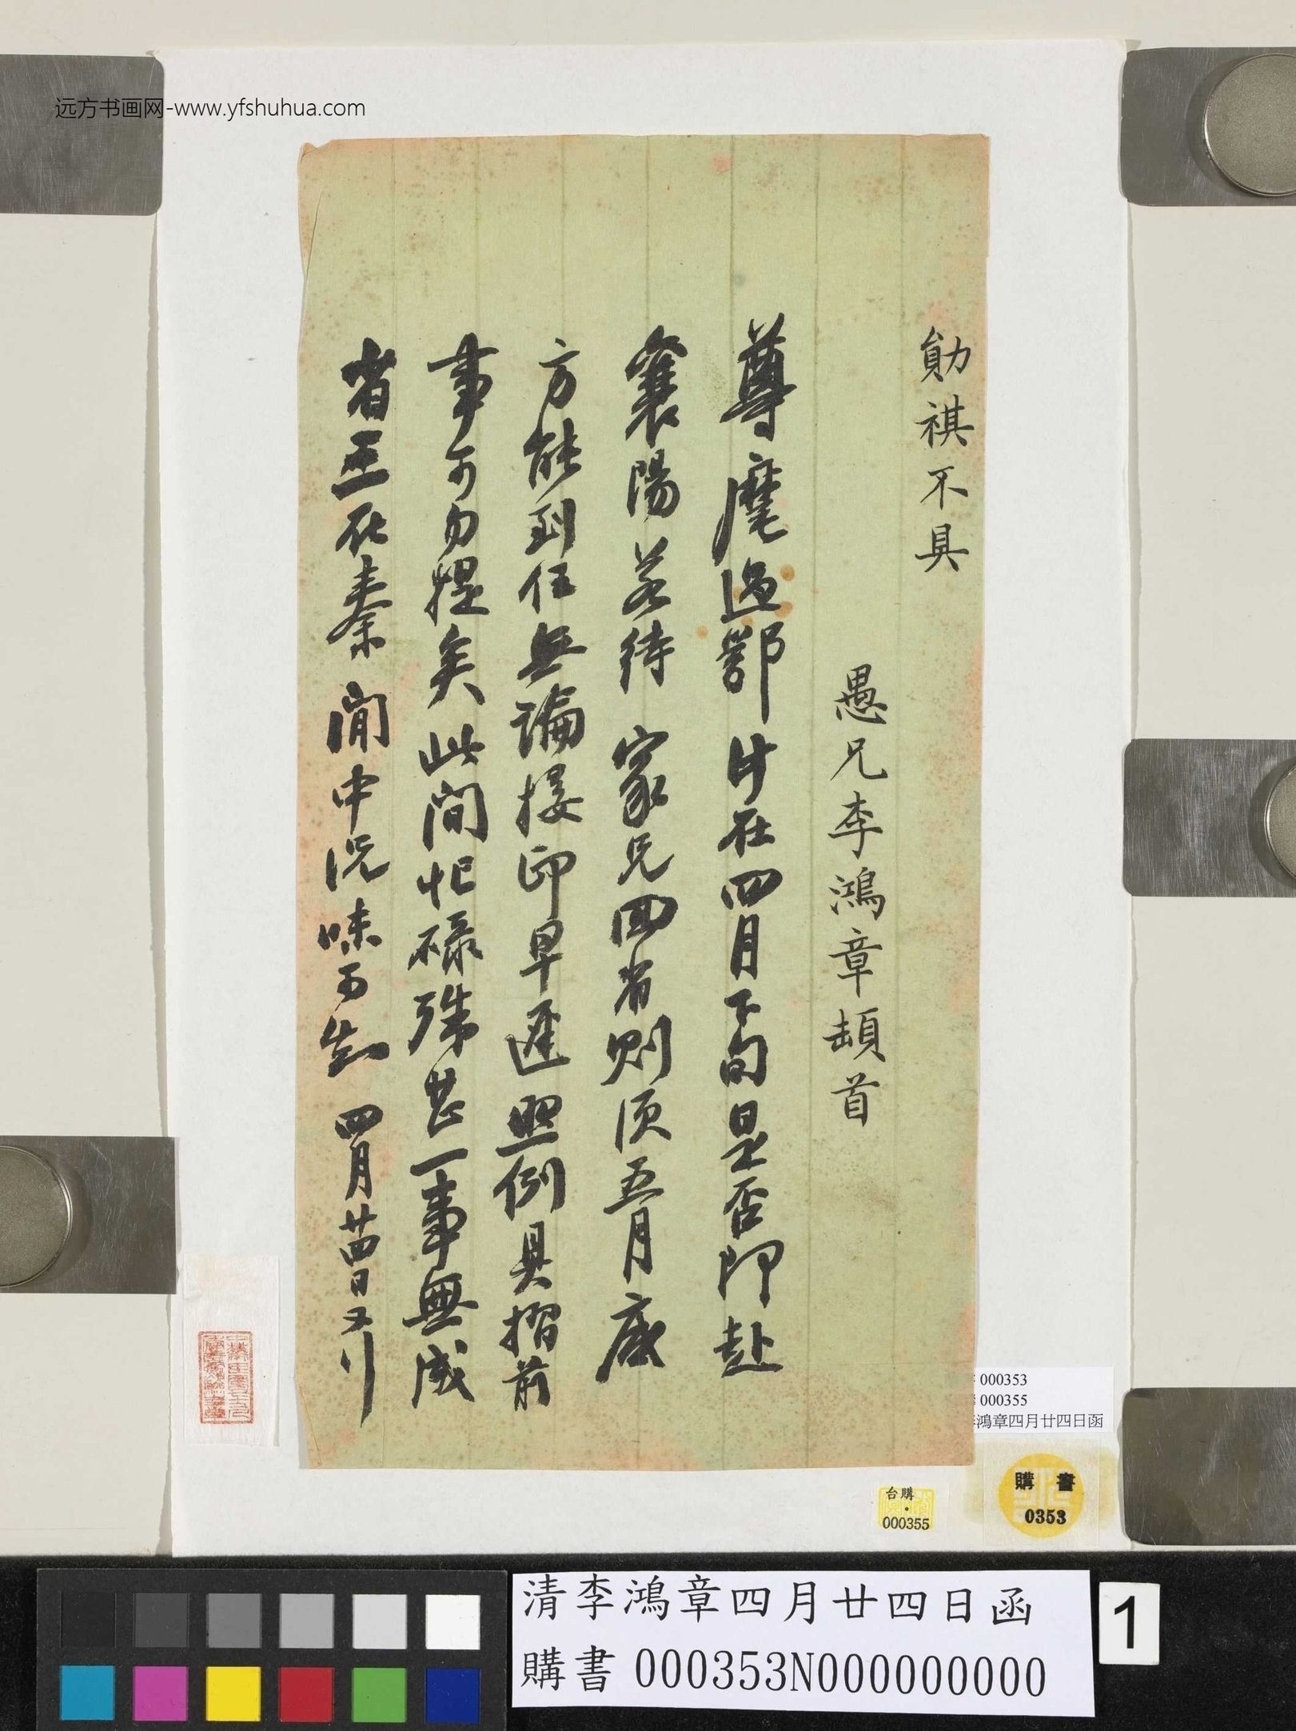 远方书画网-www.yfshuhua.com
勛祺不具
愚兄李鴻章頓首
尊麾過鄂計在四月下旬是否即赴
襄陽若待家兄回省則須五月底
方能到任無論接印早遲照例具摺前
事可勿提矣此間忙碌殊甚一事無成
省三在秦閒中況味可知四月廿四日又行
000353
000355
鴻章四月廿四日函
購書
0353
台購
000355
清李鴻章四月廿四日函
購書 000353N000000000
1